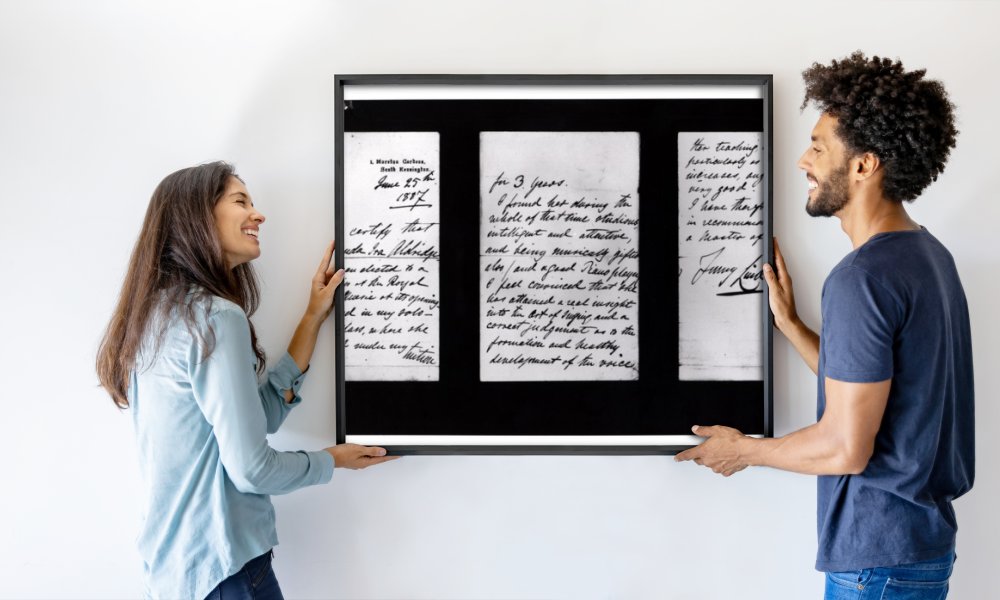 1, Moreton Gardens,
South Kensington.
June 25th
1887
certify that
nda Ira Aldridge
an elected to a
at the Royal
at its opening
d in my solo-
lass, where she
under my
tuition
for 3 years.
I found her during the
whole of that time studious
intelligent and attentive,
and being musically gifted
also, and a good Piano player
I feel convinced that she
has attained a real insight
into the art of singing and a
correct judgement as to the
formation and healthy
development of the voice.
Her teaching
particularly as
increases, any
very good.
I have
in recommen
a Master
Jenny Lind